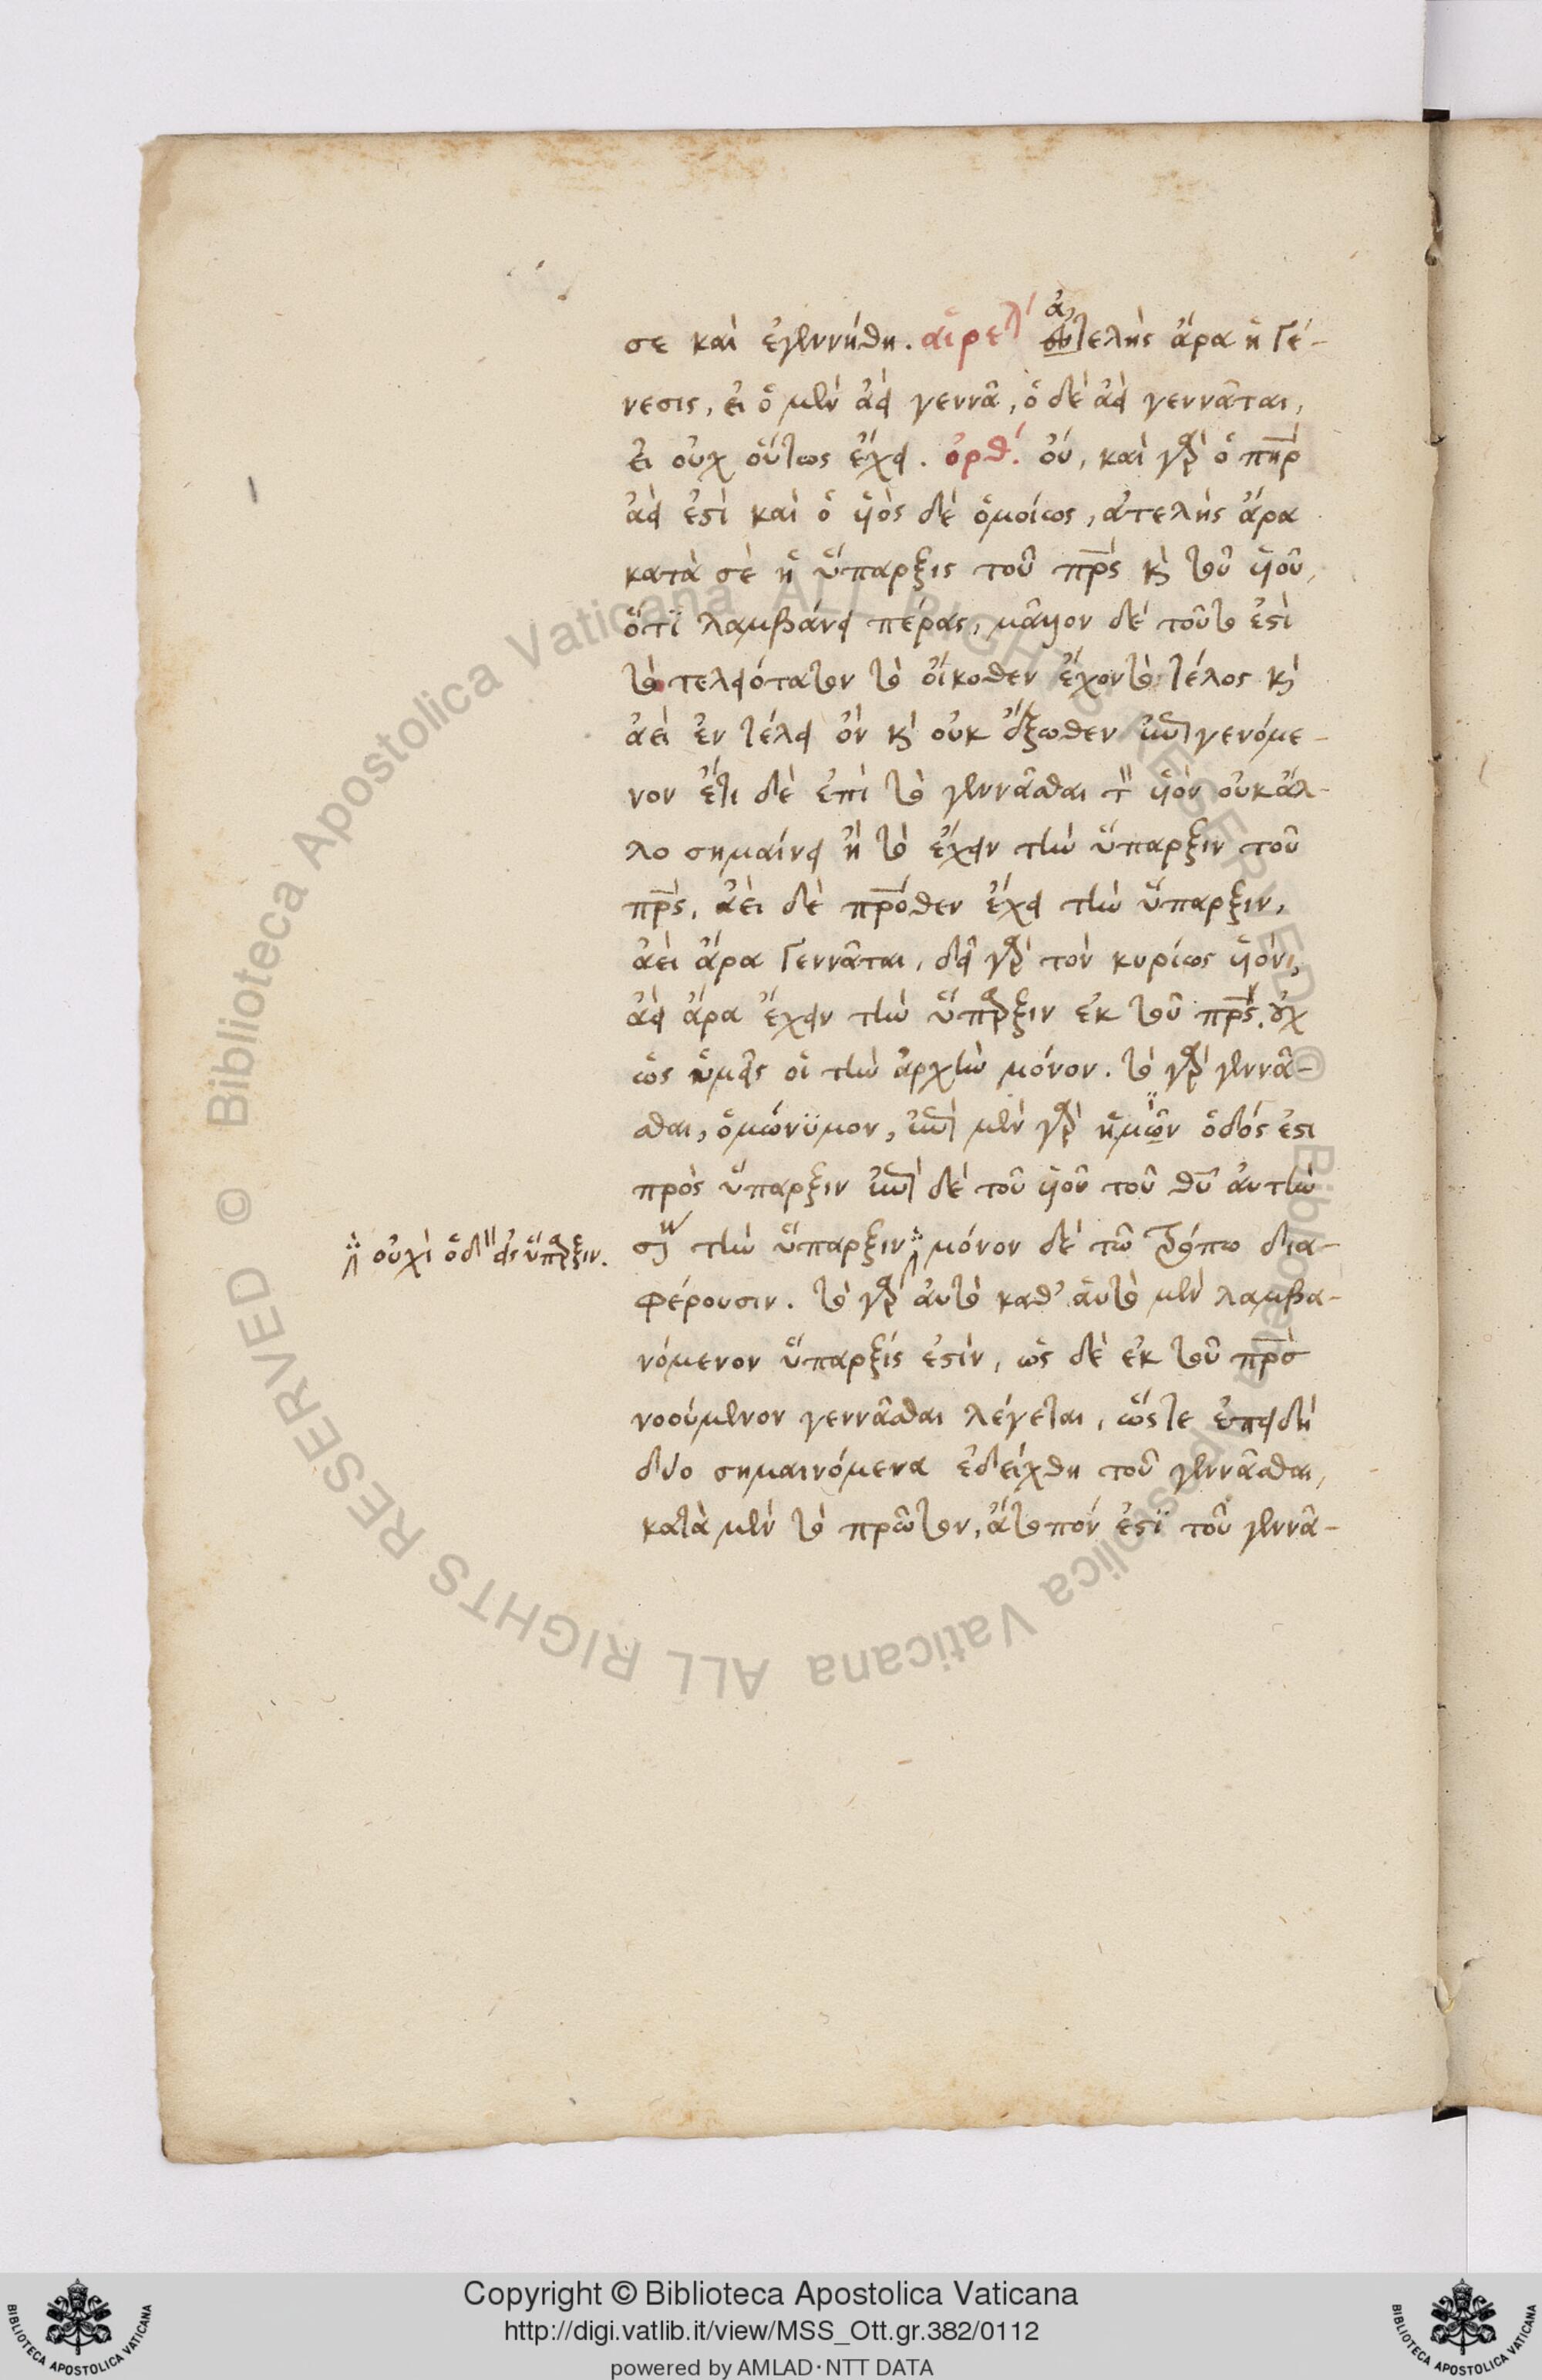 σε καὶ ἐγεννήθη. αἱρετ ἀτελὴς ἄρα ἡ γέ-
νεσις, εἰ ὁ μὲν ἀεὶ γεννᾶ, ὁ δὲ ἀεὶ γεννᾶται,
εἰ οὐχ οὕτως ἔχει. ὀρθ. οὐ, καὶ γὰρ ὁ πηρ
ἀεὶ ἐστὶ καὶ ὁ υἱὸς δὲ ὁμοίως, ἀτελὴς ἄρα
κατὰ σὲ ἡ ὕπαρξις τοῦ πρς καὶ τοῦ υἱοῦ,
ὅτι λαμβάνει πέρας, μᾶλλον δὲ τοῦτο ἐστὶ
τὸ τελειότατον τὸ οἴκοθεν ἔχον τὸ τέλος καὶ
ἀεὶ ἐν τέλει ὂν καὶ οὐκ ἔξωθεν γενόμε-
νον ἔτι δὲ ἐπὶ τὸ γεννᾶσθαι τὸν υἱὸν οὐκ ἄλ-
λο σημαίνει ἢ τὸ ἔχειν τὴν ὕπαρξιν τοῦ
πρς, ἀεὶ δὲ πρόθεν ἔχει τὴν ὕπαρξιν,
ἀεὶ ἄρα γεννᾶται, δεῖ γὰρ τὸν κυρίως υἱόν,
ἀεὶ ἄρα ἔχειν τὴν ὕπαρξιν ἐκ τοῦ πρς, οὐχ
ὡς ἡμεῖς οἱ τὴν ἀρχὴν μόνον. τὸ γὰρ γεννᾶ-
σθαι, ὁμώνυμον, ἐπὶ μὲν γὰρ ἡμῶν ὁδός ἐστι
πρὸς ὕπαρξιν ἐπὶ δὲ τοῦ υἱοῦ τοῦ θυ αὐτὴν
τὴν ὕπαρξιν μόνον δὲ τῶ τρόπω δια-
οὐχὶ ὁδὸν εἰς ὕπαρξιν.
φέρουσιν. τὸ γὰρ αὐτὸ καθ' αὑτὸ μὲν λαμβα-
νόμενον ὕπαρξίς ἐστίν, ὡς δὲ ἐκ τοῦ πρσ
νοούμενον γεννᾶσθαι λέγεται, ὥστε ἐπειδὴ
δύο σημαινόμενα ἐδείχθη τοῦ γεννᾶσθαι,
κατὰ μὲν τὸ πρῶτον, ἄτοπόν ἐστὶ τοῦ γεννᾶ-
Copyright © Biblioteca Apostolica Vaticana
http://digi.vatlib.it/view/MSS_Ott.gr.382/0112
powered by AMLAD·NTT DATA
BIBLIOTECA APOSTOLICA VATICANA
BIBLIOTECA APOSTOLICA VATICANA
© Biblioteca Apostolica Vaticana ALL RIGHTS RESERVED © Biblioteca Apostolica Vaticana ALL RIGHTS RESERVED